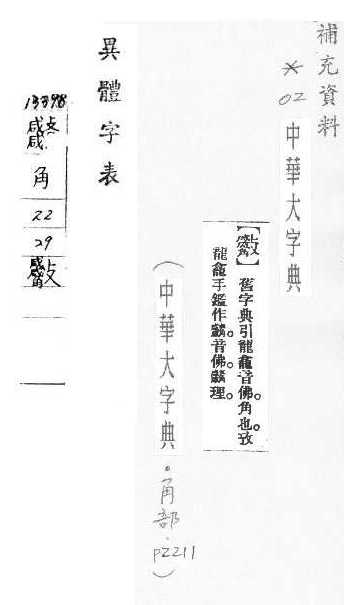 補充資料
*02 中華大字典
舊字典引龍龕音佛。角也。攷
龍龕手鑑作
音佛。
理。
(中華大字典。角部.P2211)
異體字表
13398
角
22
29